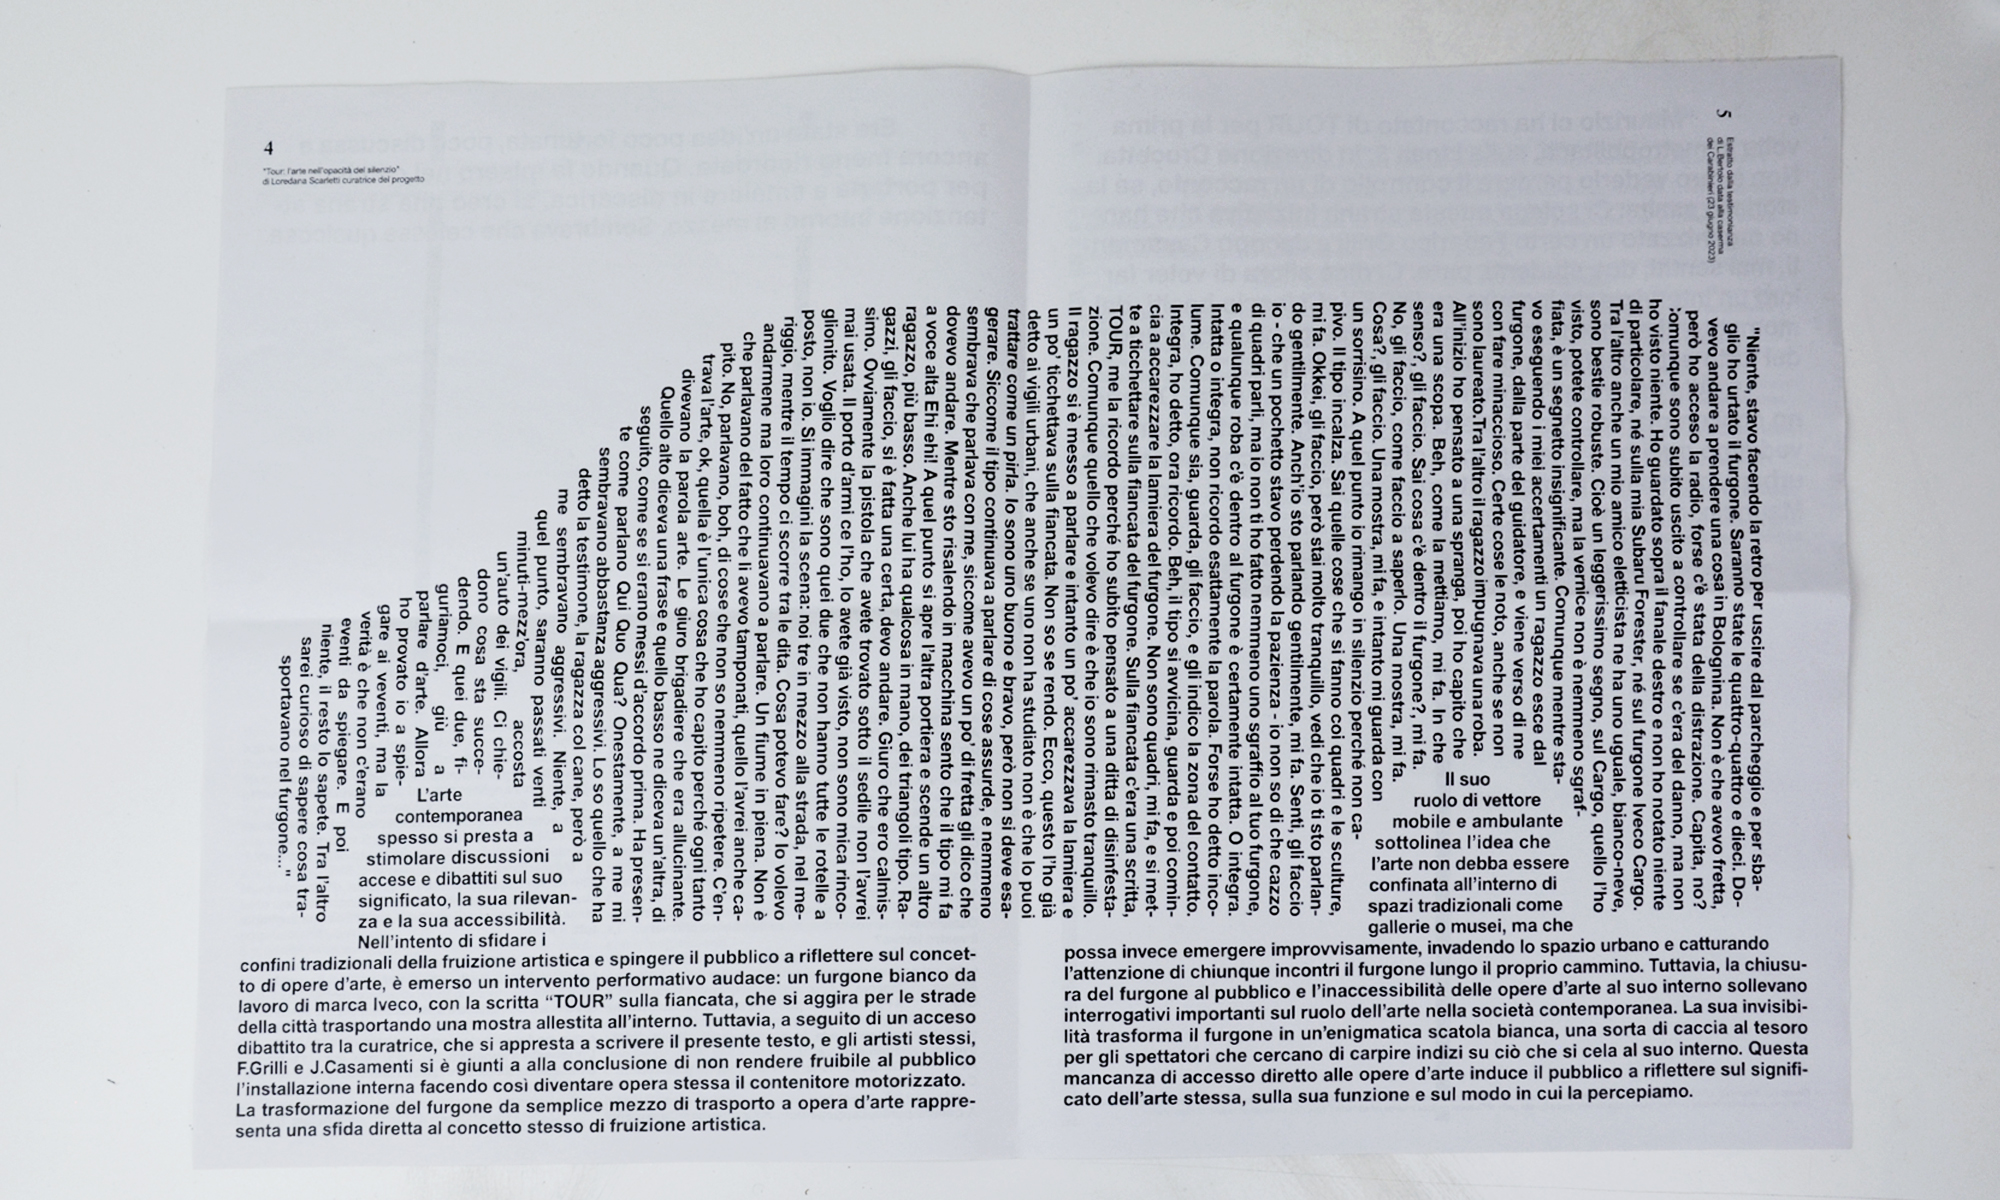 4
"Tour: l'arte nell'opacità del silenzio"
di Loredana Scarletti curatrice del progetto
L'arte
contemporanea
spesso si presta a
stimolare discussioni
accese e dibattiti sul suo
significato, la sua rilevan-
za e la sua accessibilità.
Nell'intento di sfidare i
confini tradizionali della fruizione artistica e spingere il pubblico a riflettere sul concet-
to di opere d'arte, è emerso un intervento performativo audace: un furgone bianco da
lavoro di marca Iveco, con la scritta “TOUR” sulla fiancata, che si aggira per le strade
della città trasportando una mostra allestita all'interno. Tuttavia, a seguito di un acceso
dibattito tra la curatrice, che si appresta a scrivere il presente testo, e gli artisti stessi,
F.Grilli e J.Casamenti si è giunti a alla conclusione di non rendere fruibile al pubblico
l'installazione interna facendo così diventare opera stessa il contenitore motorizzato.
La trasformazione del furgone da semplice mezzo di trasporto a opera d'arte rappre-
senta una sfida diretta al concetto stesso di fruizione artistica.
Il suo
ruolo di vettore
mobile e ambulante
sottolinea l'idea che
l'arte non debba essere
confinata all'interno di
spazi tradizionali come
gallerie o musei, ma che
possa invece emergere improvvisamente, invadendo lo spazio urbano e catturando
l'attenzione di chiunque incontri il furgone lungo il proprio cammino. Tuttavia, la chiusu-
ra del furgone al pubblico e l'inaccessibilità delle opere d'arte al suo interno sollevano
interrogativi importanti sul ruolo dell'arte nella società contemporanea. La sua invisibi-
lità trasforma il furgone in un'enigmatica scatola bianca, una sorta di caccia al tesoro
per gli spettatori che cercano di carpire indizi su ciò che si cela al suo interno. Questa
mancanza di accesso diretto alle opere d'arte induce il pubblico a riflettere sul signifi-
cato dell'arte stessa, sulla sua funzione e sul modo in cui la percepiamo.
5
Estratto dalla testimonianza
di L.Bertolo data alla caserma
dei Carabinieri (23 giugno 2023)
"Niente, stavo facendo la retro per uscire dal parcheggio e per sba-
glio ho urtato il furgone. Saranno state le quattro-quattro e dieci. Do-
vevo andare a prendere una cosa in Bolognina. Non è che avevo fretta,
però ho acceso la radio, forse c'è stata della distrazione. Capita, no?
Comunque sono subito uscito a controllare se c'era del danno, ma non
ho visto niente. Ho guardato sopra il fanale destro e non ho notato niente
di particolare, né sulla mia Subaru Forester, né sul furgone Iveco Cargo.
Tra l'altro anche un mio amico elettricista ne ha uno uguale, bianco-neve,
sono bestie robuste. Cioè un leggerissimo segno, sul Cargo, quello l'ho
visto, potete controllare, ma la vernice non è nemmeno sgraf-
fiata, è un segnetto insignificante. Comunque mentre sta-
vo eseguendo i miei accertamenti un ragazzo esce dal
furgone, dalla parte del guidatore, e viene verso di me
con fare minaccioso. Certe cose le noto, anche se non
sono laureato.Tra l'altro il ragazzo impugnava una roba.
All'inizio ho pensato a una spranga, poi ho capito che
era una scopa. Beh, come la mettiamo, mi fa. In che
senso?, gli faccio. Sai cosa c'è dentro il furgone?, mi fa.
No, gli faccio, come faccio a saperlo. Una mostra, mi fa.
Cosa?, gli faccio. Una mostra, mi fa, e intanto mi guarda con
un sorrisino. A quel punto io rimango in silenzio perché non ca-
pivo. Il tipo incalza. Sai quelle cose che si fanno coi quadri e le sculture,
mi fa. Okkei, gli faccio, però stai molto tranquillo, vedi che io ti sto parlan-
do gentilmente. Anch'io sto parlando gentilmente, mi fa. Senti, gli faccio
io - che un pochetto stavo perdendo la pazienza - io non so di che cazzo
di quadri parli, ma io non ti ho fatto nemmeno uno sgraffio al tuo furgone,
e qualunque roba c'è dentro al furgone è certamente intatta. O integra.
Intatta o integra, non ricordo esattamente la parola. Forse ho detto inco-
lume. Comunque sia, guarda, gli faccio, e gli indico la zona del contatto.
Integra, ho detto, ora ricordo. Beh, il tipo si avvicina, guarda e poi comin-
cia a accarezzare la lamiera del furgone. Non sono quadri, mi fa, e si met-
te a ticchettare sulla fiancata del furgone. Sulla fiancata c'era una scritta,
TOUR, me la ricordo perché ho subito pensato a una ditta di disinfesta-
zione. Comunque quello che volevo dire è che io sono rimasto tranquillo.
Il ragazzo si è messo a parlare e intanto un po' accarezzava la lamiera e
un po' ticchettava sulla fiancata. Non so se rendo. Ecco, questo l'ho già
detto ai vigili urbani, che anche se uno non ha studiato non è che lo puoi
trattare come un pirla. Io sono uno buono e bravo, però non si deve esa-
gerare. Siccome il tipo continuava a parlare di cose assurde, e nemmeno
sembrava che parlava con me, siccome avevo un po' di fretta gli dico che
dovevo andare. Mentre sto risalendo in macchina sento che il tipo mi fa
a voce alta Ehi ehi! A quel punto si apre l'altra portiera e scende un altro
ragazzo, più basso. Anche lui ha qualcosa in mano, dei triangoli tipo. Ra-
gazzi, gli faccio, si è fatta una certa, devo andare. Giuro che ero calmis-
simo. Ovviamente la pistola che avete trovato sotto il sedile non l'avrei
mai usata. Il porto d'armi ce l'ho, lo avete già visto, non sono mica rinco-
glionito. Voglio dire che sono quei due che non hanno tutte le rotelle a
posto, non io. Si immagini la scena: noi tre in mezzo alla strada, nel me-
riggio, mentre il tempo ci scorre tra le dita. Cosa potevo fare? Io volevo
andarmene ma loro continuavano a parlare. Un fiume in piena. Non è
che parlavano del fatto che li avevo tamponati, quello l'avrei anche ca-
pito. No, parlavano, boh, di cose che non so nemmeno ripetere. C'en-
trava l'arte, ok, quella è l'unica cosa che ho capito perché ogni tanto
divevano la parola arte. Le giuro brigadiere che era allucinante.
Quello alto diceva una frase e quello basso ne diceva un'altra, di
seguito, come se si erano messi d'accordo prima. Ha presen-
te come parlano Qui Quo Qua? Onestamente, a me mi
sembravano abbastanza aggressivi. Lo so quello che ha
detto la testimone, la ragazza col cane, però a
me sembravano aggressivi. Niente, a
quel punto, saranno passati venti
minuti-mezz'ora, accosta
un'auto dei vigili. Ci chie-
dono cosa sta succe-
dendo. E quei due, fi-
guriamoci, giù a
parlare d'arte. Allora
ho provato io a spie-
gare ai veventi, ma la
verità è che non c'erano
eventi da spiegare. E poi
niente, il resto lo sapete. Tra l'altro
sarei curioso di sapere cosa tra-
sportavano nel furgone..."